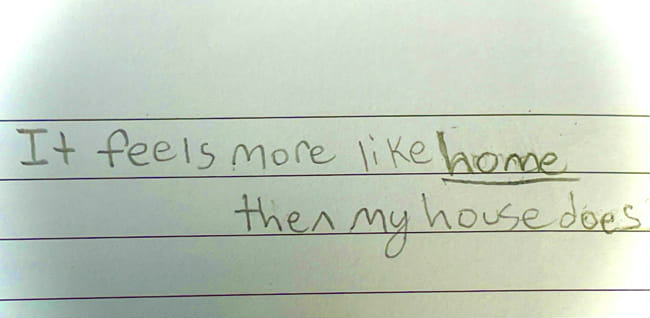 It feels more like home
then my house does